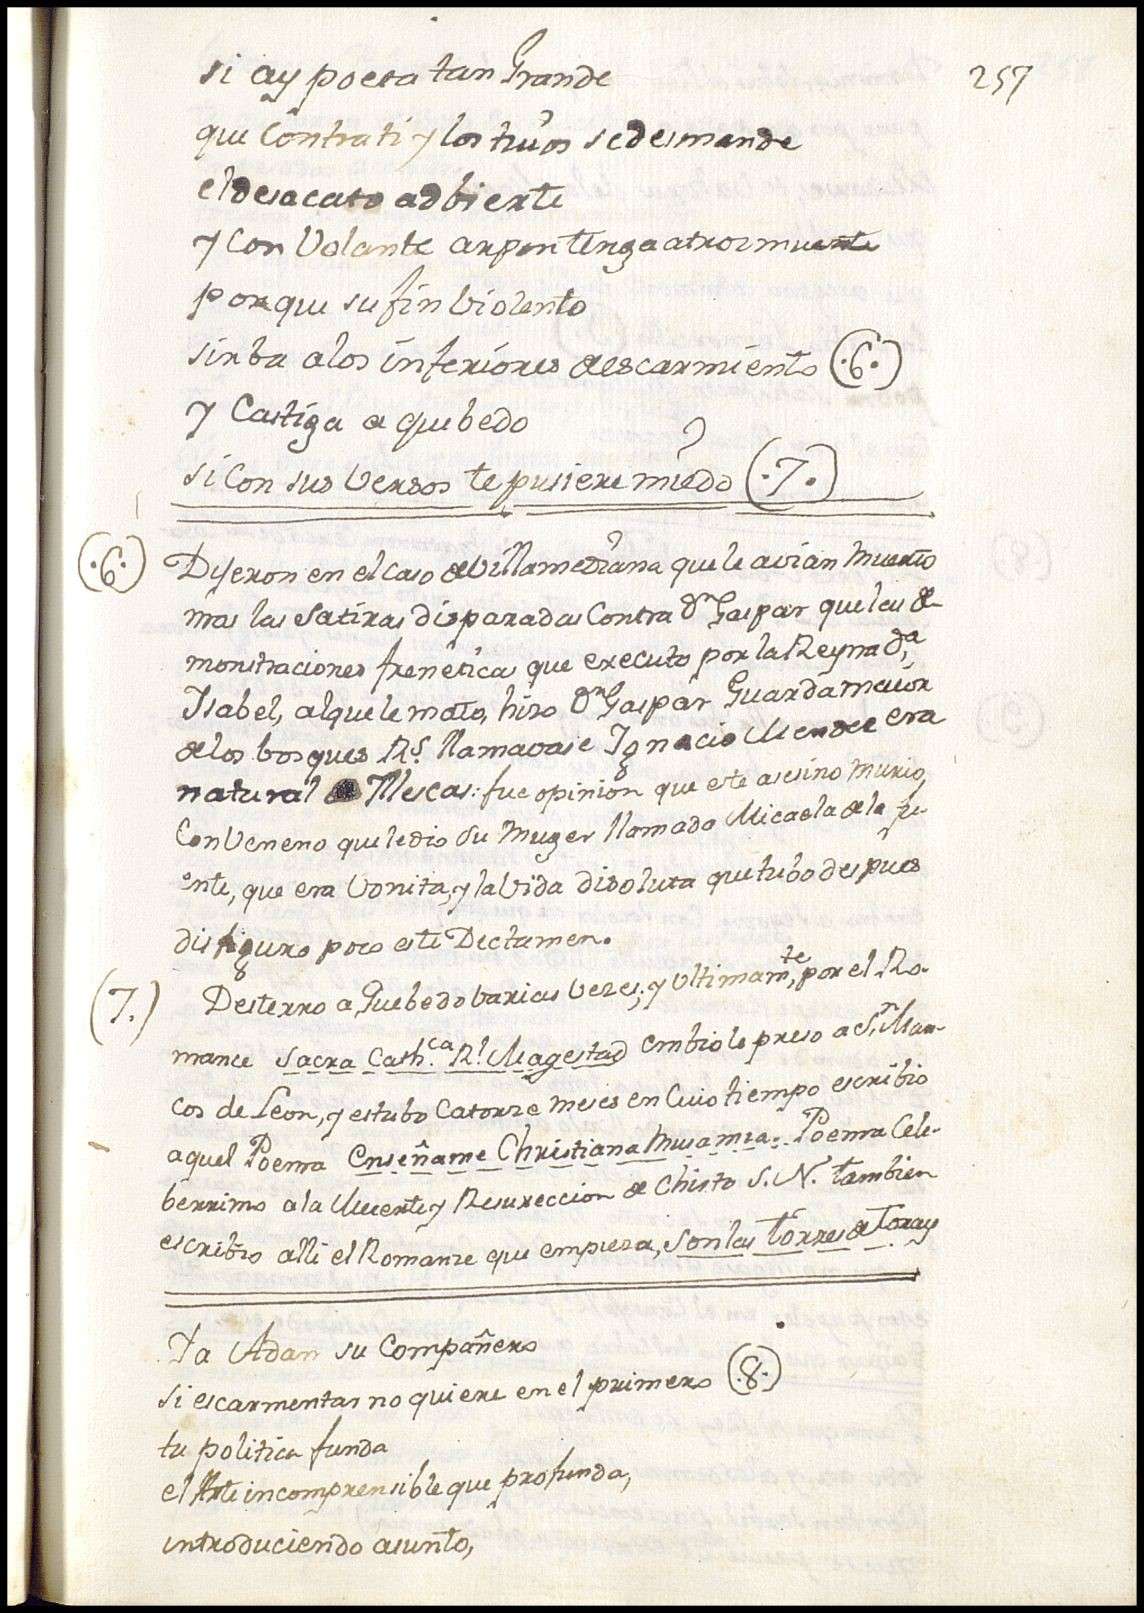 257
si ay poeta tan Grande
que Contra ti y los tuios se desmande
el desacato adbierte
y Con Volante arpon tenga atroz muerte
porque su fin Violento
sirba a los inferiores de escarmiento (.6.)
y Castiga a quebedo
si Con sus versos te pusiere miedo (.7.)
(.6.) Dijeron en el caso de Villamediana que le avian muerto
mas las satiras disparadas Contra Dn Gaspar que las de-
monstraciones freneticas que executo por la Reyna da,
Isabel, al que le mato, hizo Dn Gaspar Guarda maior
de los bosques Rs. llamavase Ignacio Mendez era
natural de Illescas: fue opinion que este asesino murio,
Con Veneno que le dio su muger llamada Micaela de la fu-
ente, que era Vonita, y la Vida disoluta que tubo despues
disfiguro poco este Dictamen.
(7.) Desterro a Quebedo Varias Vezes; y Ultimamte, por el Ro-
mance Sacra Cathca. Rl. Magestad embiole preso a Sn Mar-
cos de Leon, y estubo Catorze meses en Cuio tiempo escribio
aquel Poema Enseñame Christiana Musa mia. Poema Cele-
berrimo a la Muerte y Resureccion de Christo S. N. tambien
escribio alli el Romanze que empieza, Son las torres de Joray
Ja Adan su Compañero
si escarmentar no quiere en el primero (.8.)
tu politica funda
el Arte incomprensible que profunda,
introduciendo asunto,